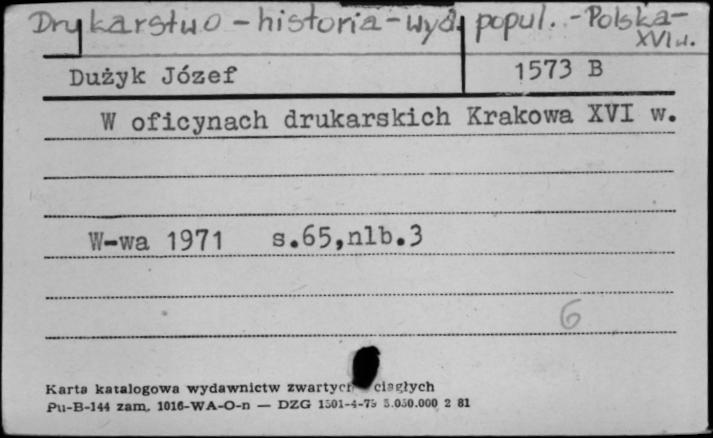 Drukarstwo - historia - wyd. popul. - Polska -
XVI w.
Dużyk Józef 1573 B
W oficynach drukarskich Krakowa XVI w.
W-wa 1971 s.65,nlb.3
6
Karta katalogowa wydawnictw zwartych ciągłych
Pu-B-144 zam. 1016-WA-O-n — DZG 1501-4-75 5.050.000 2 81